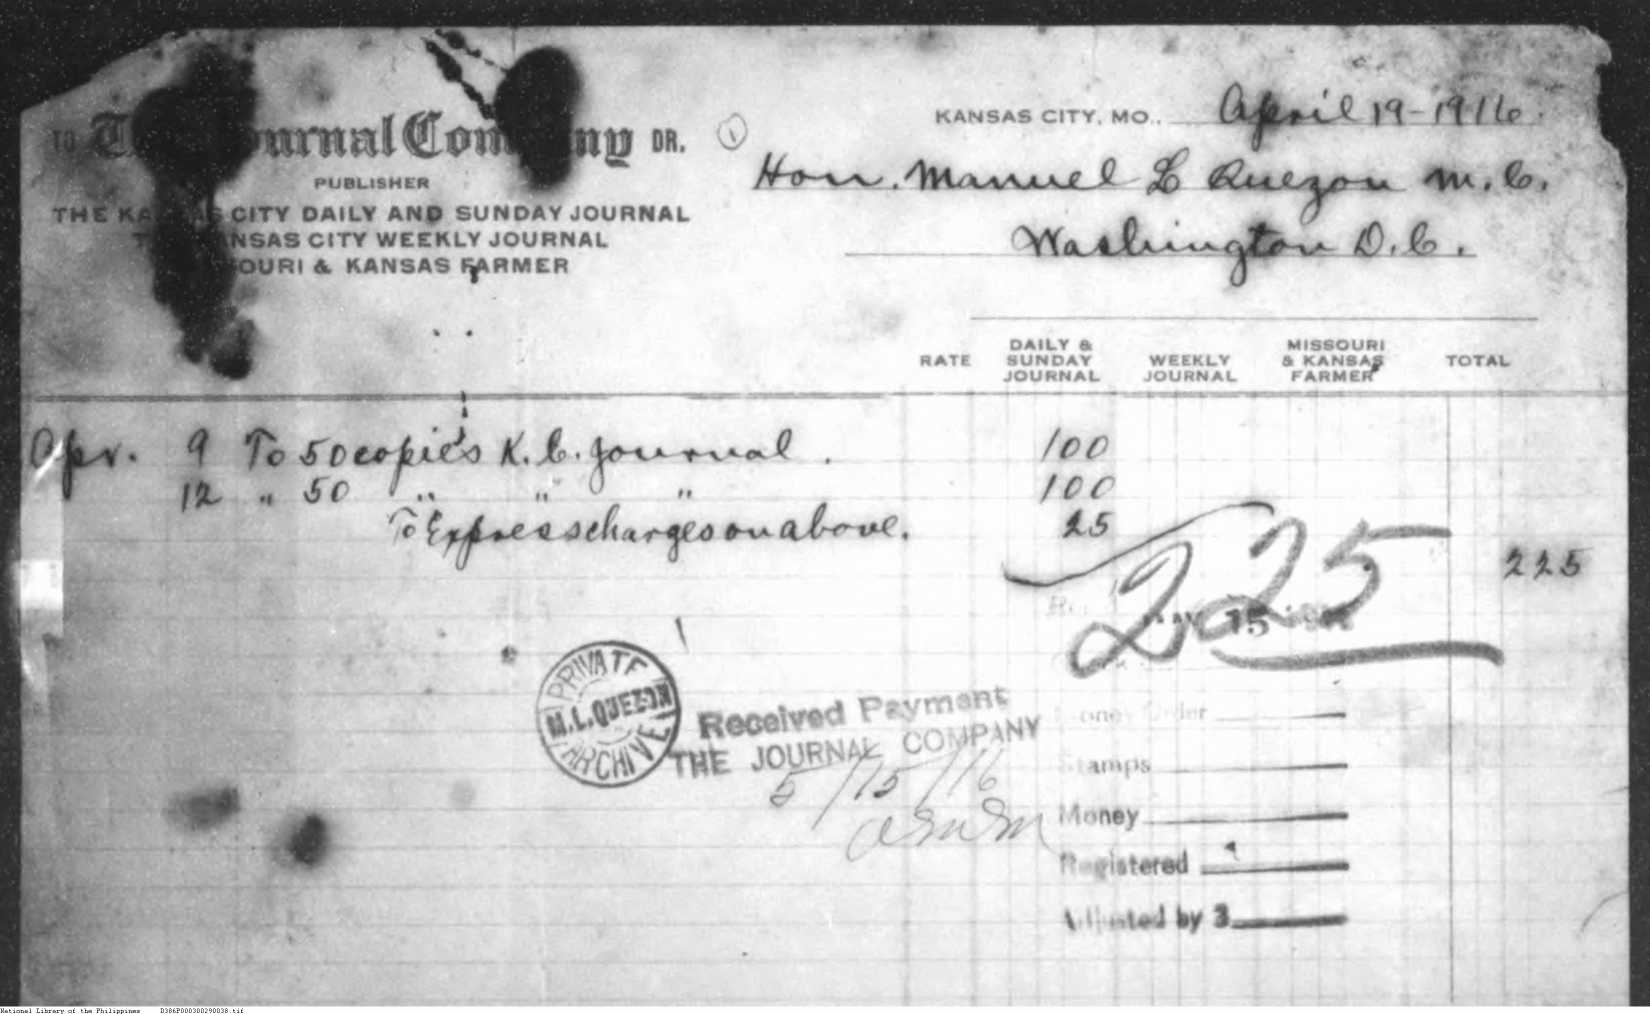 TO The Journal Company DR.
PUBLISHER
THE KANSAS CITY DAILY AND SUNDAY JOURNAL
THE KANSAS CITY WEEKLY JOURNAL
MISSOURI & KANSAS FARMER
1
KANSAS CITY, MO., April 19-1916.
Hon. Manuel L Quezon M.C.
Washington D.C.
RATE
DAILY & SUNDAY JOURNAL
WEEKLY JOURNAL
MISSOURI & KANSAS FARMER
TOTAL
Apr. 9 To 50 copies K.C. Journal. 100
12 " 50 " " " 100
To Express charges on above. 25
225
2 25
15
PRIVATE
M.L. QUEZON
ARCHIVE
Received Payment
THE JOURNAL COMPANY
5/15/16
Money Order
Stamps
Money
Registered
Adjusted by 3
National Library of the Philippines D386P000300290038.tif